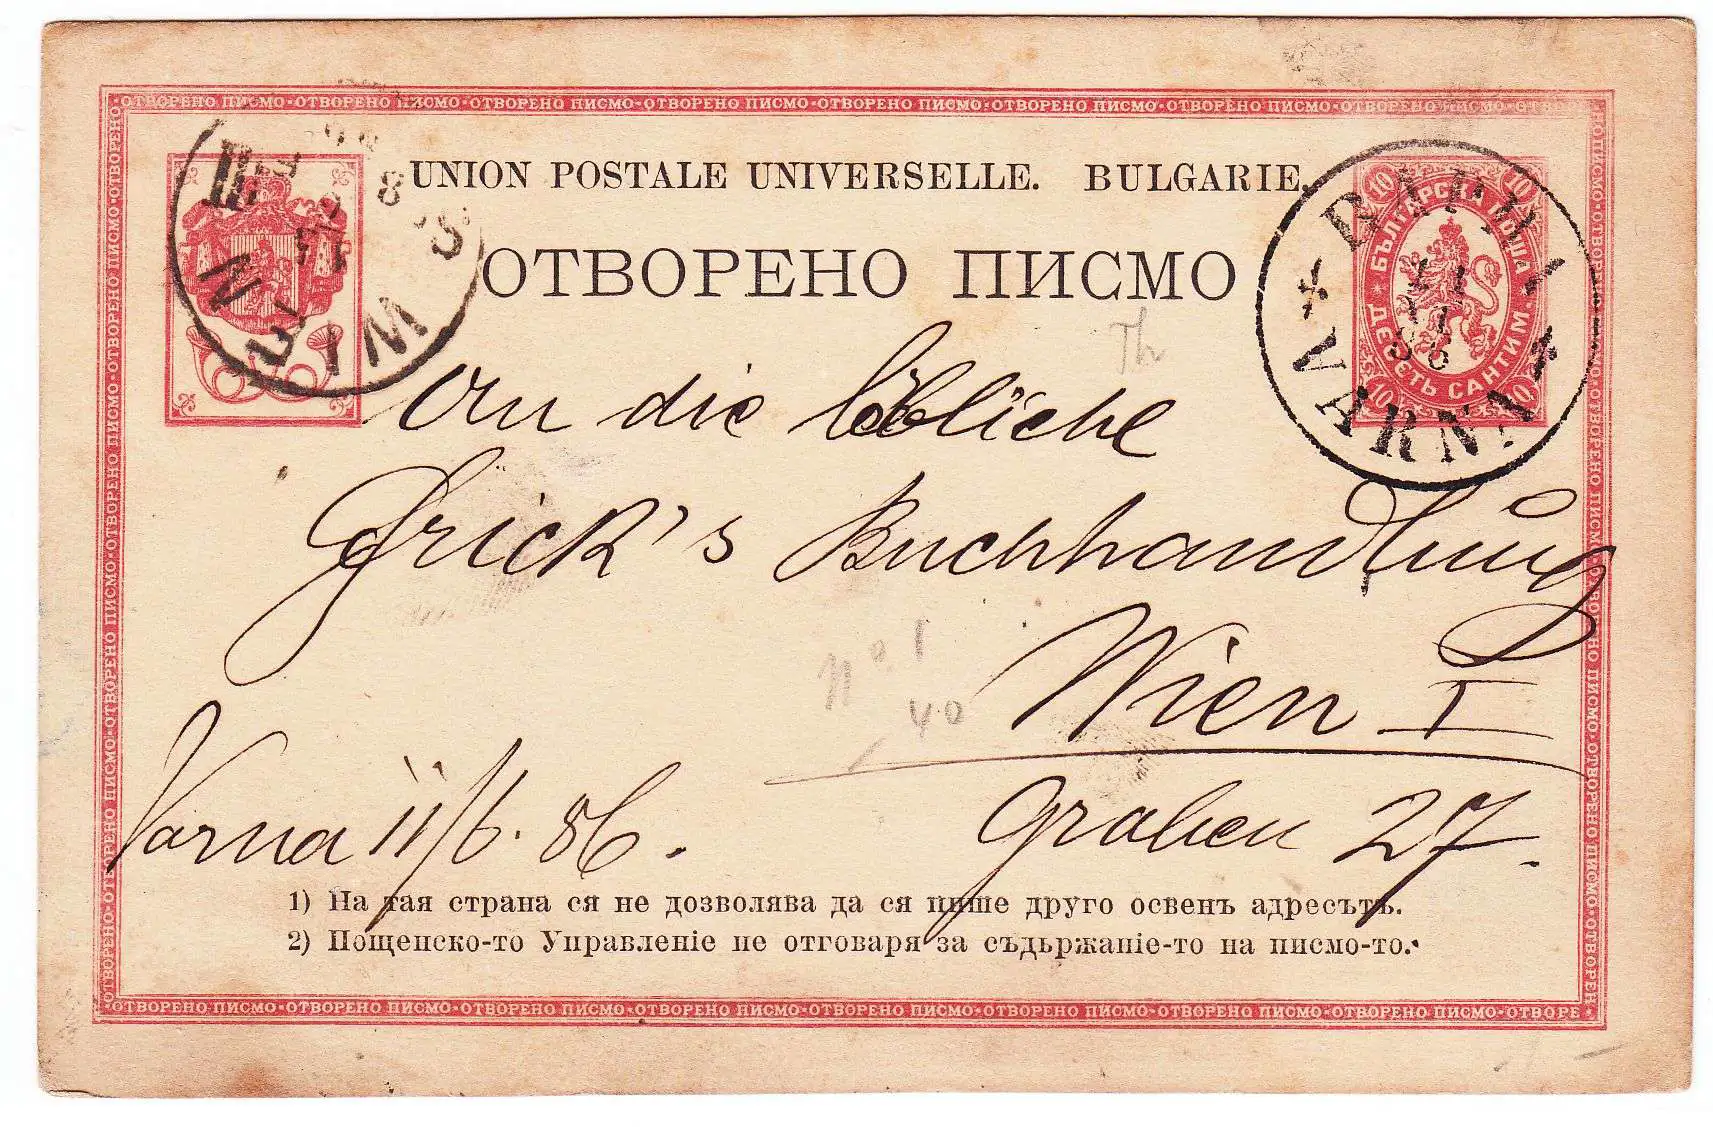 ОТВОРЕНО ПИСМО·ОТВОРЕНО ПИСМО·ОТВОРЕНО ПИСМО·ОТВОРЕНО ПИСМО·ОТВОРЕНО ПИСМО·ОТВОРЕНО ПИСМО·ОТВОРЕНО ПИСМО·ОТВОРЕНО ПИСМО·ОТВОРЕ
UNION POSTALE UNIVERSELLE. BULGARIE.
ОТВОРЕНО ПИСМО
WIEN
III
8
БЪЛГАРСКА ПОЩА
ДЕСЕТЬ САНТИМИ
10 10
10 10
ВАРНА
11
VI
86
VARNA
Th
An die löbliche
Frick's Buchhandlung
No. 1
40
Wien I
Graben 27.
Varna 11/6. 86.
1) На тая страна ся не дозволява да ся пише друго освенъ адресътъ.
2) Пощенско-то Управленіе не отговаря за съдържаніе-то на писмо-то.
ОТВОРЕНО ПИСМО·ОТВОРЕНО ПИСМО·ОТВОРЕНО ПИСМО·ОТВОРЕНО ПИСМО·ОТВОРЕНО ПИСМО·ОТВОРЕНО ПИСМО·ОТВОРЕНО ПИСМО·ОТВОРЕНО ПИСМО·ОТВОРЕ